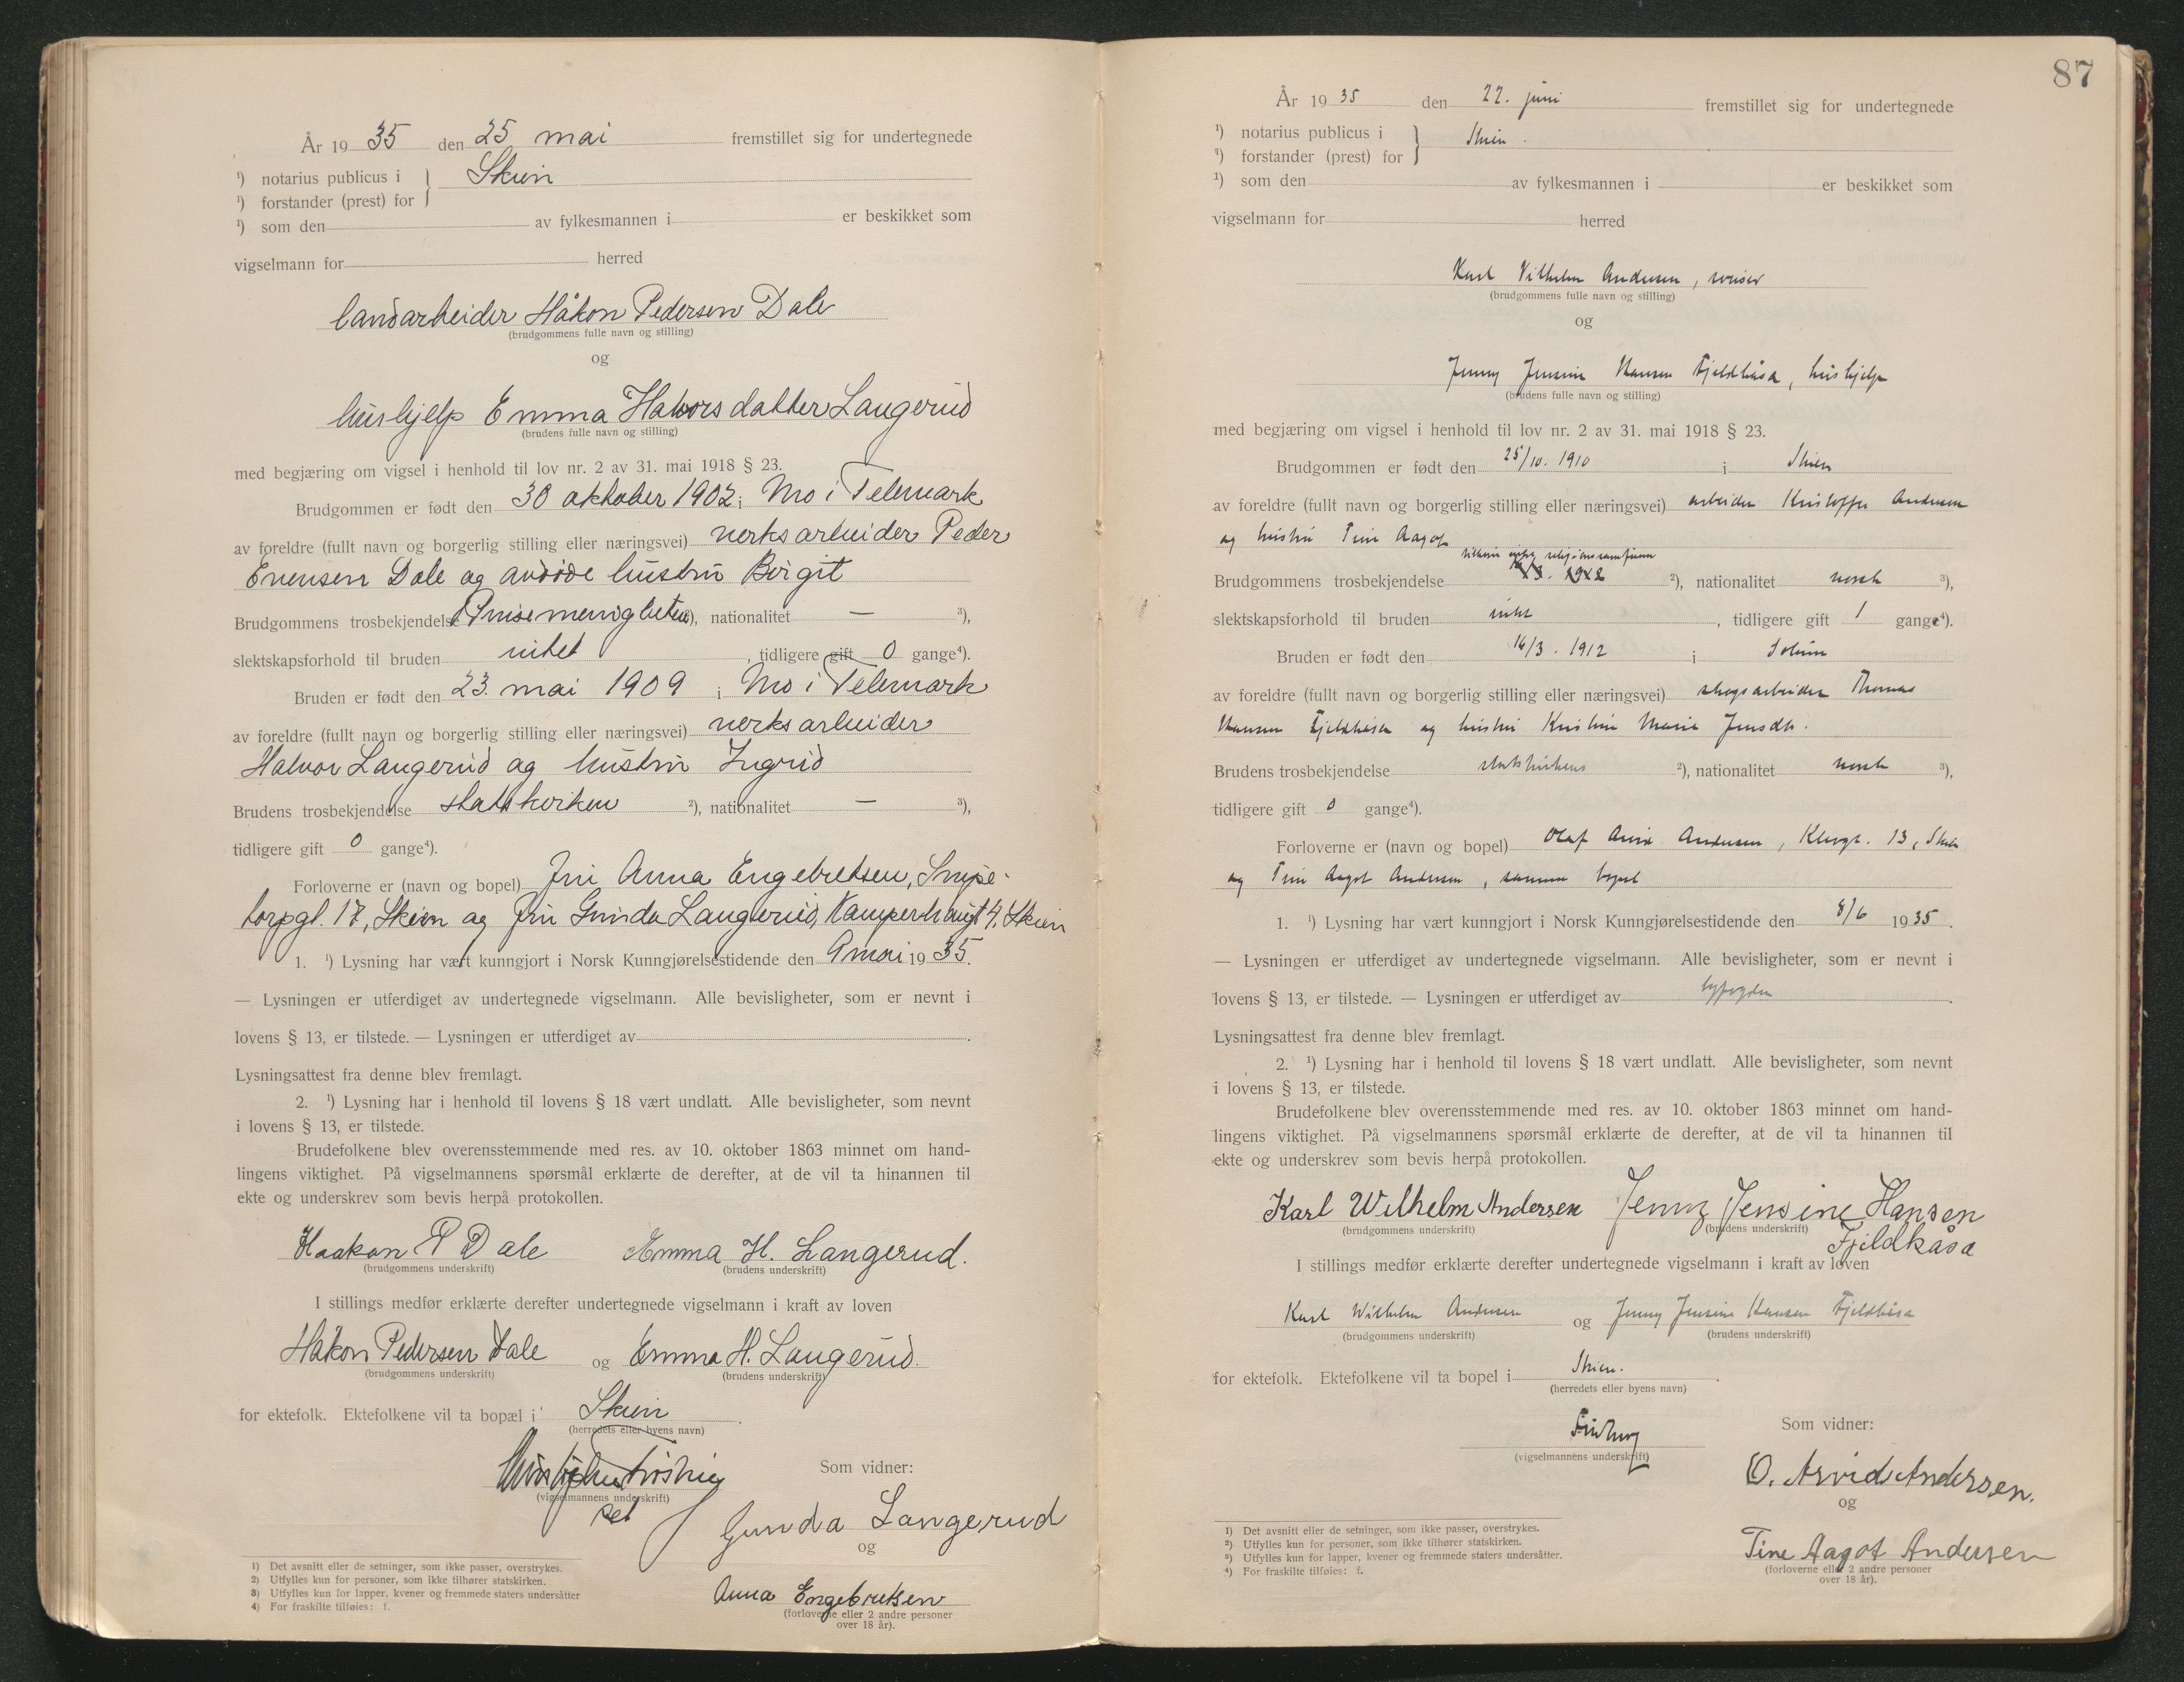 År 19 35 den 25 mai fremstillet sig for undertegnede
¹) notarius publicus i } Skien
¹) forstander (prest) for
¹) som den av fylkesmannen i er beskikket som
vigselmann for herred
landarbeider Håkon Pedersen Dale
(brudgommens fulle navn og stilling)
og
hushjelp Emma Halvorsdatter Langerud
(brudens fulle navn og stilling)
med begjæring om vigsel i henhold til lov nr. 2 av 31. mai 1918 § 23.
Brudgommen er født den 30 oktober 1902 i Mo i Telemark
av foreldre (fullt navn og borgerlig stilling eller næringsvei) verksarbeider Peder
Evensen Dale og avdøde hustru Birgit
Brudgommens trosbekjendelse Pinsemenigheten ²), nationalitet — ³),
slektskapsforhold til bruden intet, tidligere gift 0 gange⁴).
Bruden er født den 23. mai 1909 i Mo i Telemark
av foreldre (fullt navn og borgerlig stilling eller næringsvei) verksarbeider
Halvor Langerud og hustru Ingrid
Brudens trosbekjendelse statskirken ²), nationalitet — ³),
tidligere gift 0 gange⁴).
Forloverne er (navn og bopel) fru Anna Engebretsen, Snipe-
torpgt. 17, Skien og fru Gunda Langerud, Kamperhaugt 4, Skien
1. ¹) Lysning har vært kunngjort i Norsk Kunngjørelsestidende den 9 mai 19 35.
— Lysningen er utferdiget av undertegnede vigselmann. Alle bevisligheter, som er nevnt i
lovens § 13, er tilstede. — Lysningen er utferdiget av
Lysningsattest fra denne blev fremlagt.
2. ¹) Lysning har i henhold til lovens § 18 vært undlatt. Alle bevisligheter, som nevnt
i lovens § 13, er tilstede.
Brudefolkene blev overensstemmende med res. av 10. oktober 1863 minnet om hand-
lingens viktighet. På vigselmannens spørsmål erklærte de derefter, at de vil ta hinannen til
ekte og underskrev som bevis herpå protokollen.
Haakon P Dale Emma H. Langerud.
(brudgommens underskrift) (brudens underskrift)
I stillings medfør erklærte derefter undertegnede vigselmann i kraft av loven
Håkon Pedersen Dale og Emma H. Langerud.
(brudgommens underskrift) (brudens underskrift)
for ektefolk. Ektefolkene vil ta bopæl i Skien.
(herredets eller byens navn)
Som vidner:
(vigselmannens underskrift)
Gunda Langerud
og
Anna Engebretsen
(forloverne eller 2 andre personer
over 18 år).
1) Det avsnitt eller de setninger, som ikke passer, overstrykes.
2) Utfylles kun for personer, som ikke tilhører statskirken.
3) Utfylles kun for lapper, kvener og fremmede staters undersåtter
4) For fraskilte tilføies: f.
87
År 19 35 den 22. juni fremstillet sig for undertegnede
¹) notarius publicus i } Skien.
¹) forstander (prest) for
¹) som den av fylkesmannen i er beskikket som
vigselmann for herred
Karl Vilhelm Andersen,
(brudgommens fulle navn og stilling)
og
Jenny Jensine Hansen Fjeldkåsa, hushjelp
(brudens fulle navn og stilling)
med begjæring om vigsel i henhold til lov nr. 2 av 31. mai 1918 § 23.
Brudgommen er født den 25/10. 1910 i Skien
av foreldre (fullt navn og borgerlig stilling eller næringsvei) arbeider Kristoffer Andersen
og hustru Tine Aagot
tilhører intet religionssamfunn
Brudgommens trosbekjendelse ²), nationalitet norsk ³),
slektskapsforhold til bruden intet, tidligere gift 1 gange⁴).
Bruden er født den 14/3. 1912 i Solum
av foreldre (fullt navn og borgerlig stilling eller næringsvei) skogsarbeider Thomas
Hansen Fjeldkåsa og hustru Kristine Marie Jensdtr.
Brudens trosbekjendelse statskirkens ²), nationalitet norsk ³),
tidligere gift 0 gange⁴).
Forloverne er (navn og bopel) Olaf Arvid Andersen, 13, Skien
og Tine Aagot Andersen, samme bopel
1. ¹) Lysning har vært kunngjort i Norsk Kunngjørelsestidende den 8/6 19 35.
— Lysningen er utferdiget av undertegnede vigselmann. Alle bevisligheter, som er nevnt i
lovens § 13, er tilstede. — Lysningen er utferdiget av byfogden.
Lysningsattest fra denne blev fremlagt.
2. ¹) Lysning har i henhold til lovens § 18 vært undlatt. Alle bevisligheter, som nevnt
i lovens § 13, er tilstede.
Brudefolkene blev overensstemmende med res. av 10. oktober 1863 minnet om hand-
lingens viktighet. På vigselmannens spørsmål erklærte de derefter, at de vil ta hinannen til
ekte og underskrev som bevis herpå protokollen.
Karl Wilhelm Andersen Jenny Jensine Hansen
(brudgommens underskrift) (brudens underskrift) Fjeldkåsa
I stillings medfør erklærte derefter undertegnede vigselmann i kraft av loven
Karl Wilhelm Andersen og Jenny Jensine Hansen Fjeldkåsa
(brudgommens underskrift) (brudens underskrift)
for ektefolk. Ektefolkene vil ta bopel i Skien.
(herredets eller byens navn)
Som vidner:
(vigselmannens underskrift)
O. Arvid Andersen.
og
Tine Aagot Andersen
(forloverne eller 2 andre personer
over 18 år).
1) Det avsnitt eller de setninger, som ikke passer, overstrykes.
2) Utfylles kun for personer, som ikke tilhører statskirken.
3) Utfylles kun for lapper, kvener og fremmede staters undersåtter.
4) For fraskilte tilføies: f.